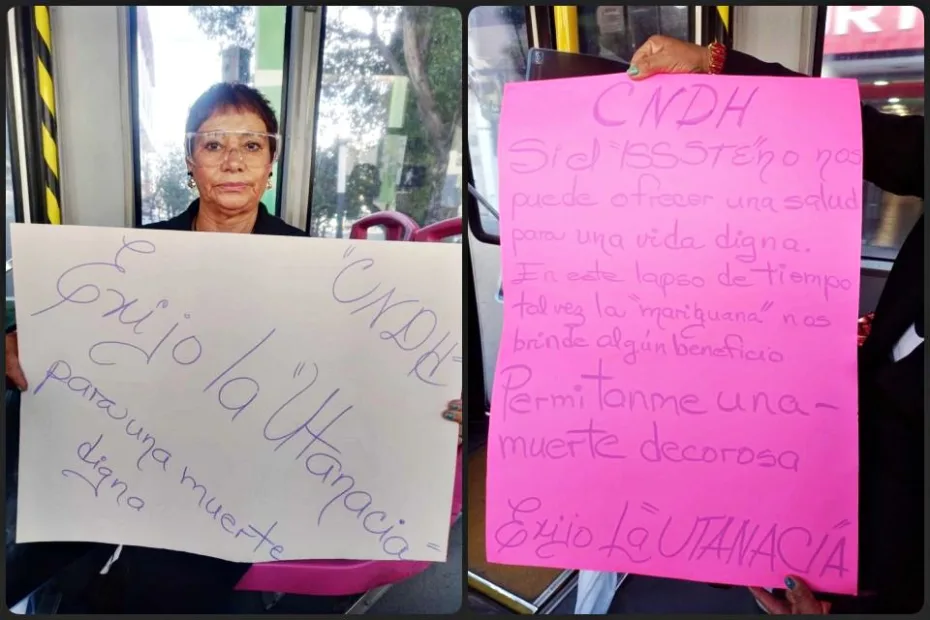 "CNDH"
Exijo la "Utanacia"
para una muerte
digna
RT
CNDH
Si el "ISSSTE" no nos
puede ofrecer una salud
para una vida digna.
En este lapso de tiempo
tal vez la "mariguana" nos
brinde algún beneficio
Permitanme una-
muerte decorosa
Exijo La "UTANACÍA"